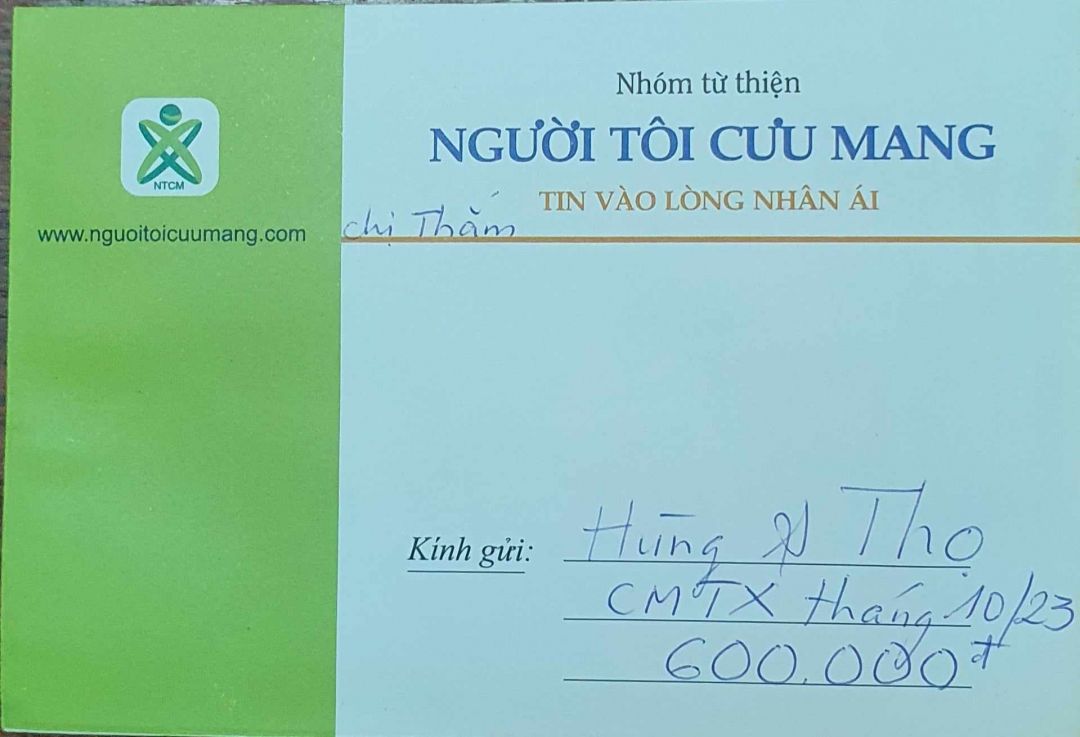 NTCM
www.nguoitoicuumang.com
Nhóm từ thiện
NGƯỜI TÔI CƯU MANG
TIN VÀO LÒNG NHÂN ÁI
chị Thắm
Kính gửi: Hùng Thọ
CMTX tháng 10/23
600.000đ